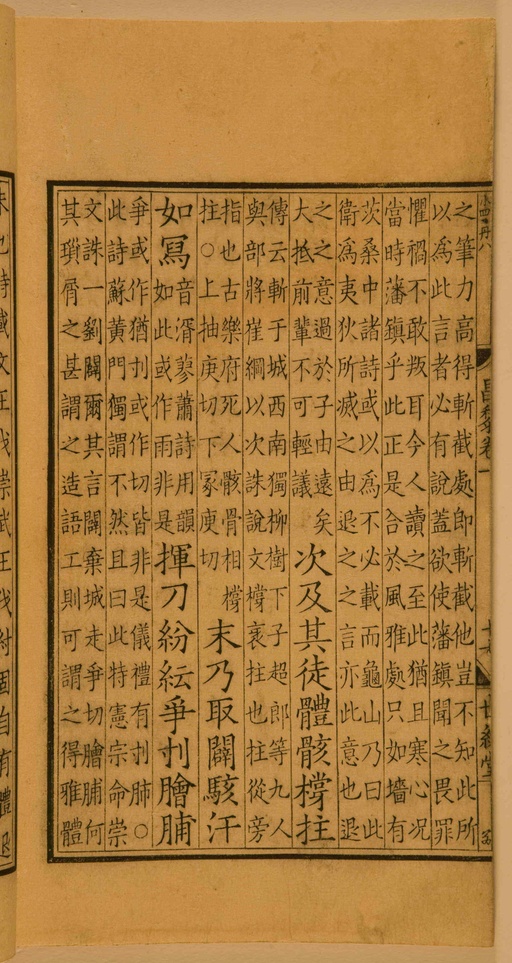 之筆力高得斬截處即斬截他豈不知此所
以爲此言者必有說蓋欲使藩鎭聞之畏罪
懼禍不敢叛耳今人讀之至此猶且寒心况
當時藩鎭乎此正是合於風雅處只如墻有
茨桑中諸詩或以爲不必載而龜山乃曰此
衛爲夷狄所滅之由退之之言亦此意也退
之之意過於子由遠矣
大抵前輩不可輕議
次及其徒體骸撐拄
傳云斬于城西南獨柳樹下子超郎等九人
與部將崔綱以次誅說文撐衺拄也拄從旁
指也古樂府死人骸骨相撐
拄○上抽庚切下冢庚切
末乃取闢駭汗
如寫
音湑蓼蕭詩用韻
如此或作雨非是
揮刀紛紜爭刌膾脯
爭或作猶刌或作切皆非是儀禮有刌肺○
此詩蘇黄門獨謂不然且曰此特憲宗命崇
文誅一劉闢爾其言闢棄城走爭切膾脯何
其瑣屑之甚謂之造語工則可謂之得雅體
昌黎卷一
世綵堂